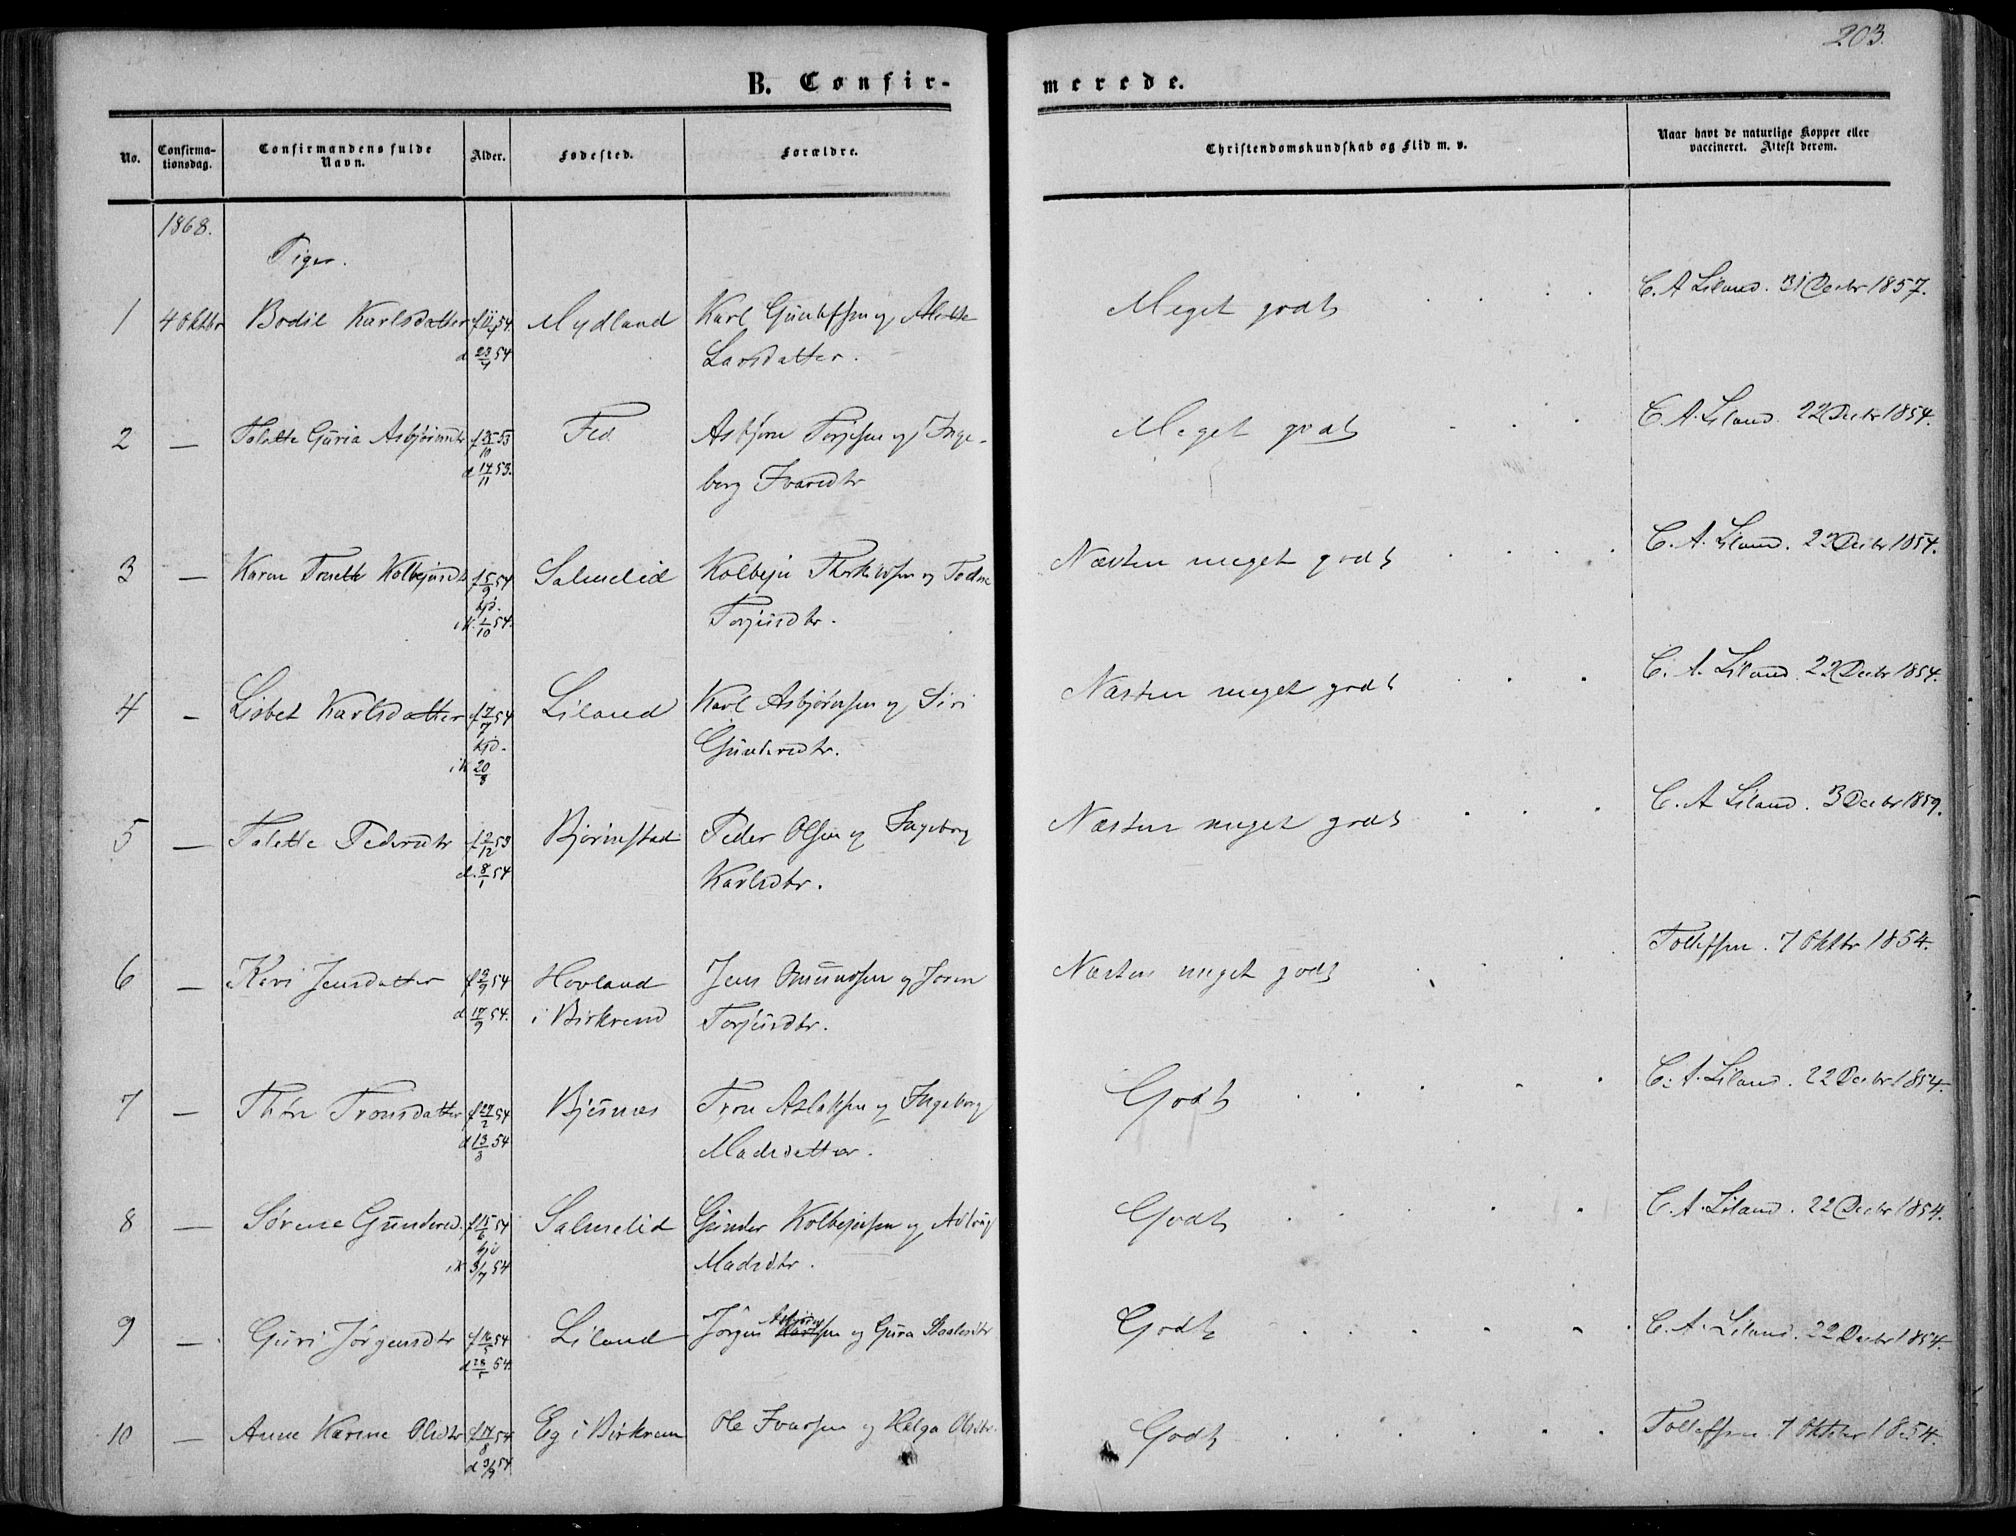 203.
B. Confir-
merede.
No.
Confirma-
tionsdag.
Confirmandens fulde
Navn.
Alder.
Fødested.
Forældre.
Christendomskundskab og Flid m. v.
Naar havt de naturlige Kopper eller
vaccineret. Attest derom.
1868.
Piger.
1 4 Oktbr Bodil Karlsdatter f. 11/4 54 Mydland Karl og Alette Meget godt C. A Liland. 31 Decbr 1857.
d 23/4 54 Larsdatter.
2 — Talette Guria Asbjørnsdtr f. 25/10 53 Fed. Asbjørn Torjesen og Inge- Meget godt C. A. Liland. 22 Decbr 1854.
d 17/11 53. borg Ivarsdtr
3 — Karen Tonette Kolbejnsdtr f. 5/9 54 Salmelid Kolbejn Thorkildsen og Næsten meget godt C. A. Liland. 22 Decbr 1854.
hjd.
i K. 1/10 54. Torjusdtr.
4 — Lisbet Karlsdatter f. 17/7 54 Liland Karl Asbjørnsen og Siri Næsten meget godt C. A. Liland. 22 Decbr 1854.
hjd.
i K 20/8 Gundersdtr.
5 — Talette Pedersdtr f. 2/12 53 Bjørnestad Peder Olsen og Ingeborg Næsten meget godt C. A Liland. 3 Decbr 1859.
d. 8/1 54 Karlsdtr.
6 — Kari Jensdatter f. 9/9 54 Hovland Jens Omundsen og Joren Næsten meget godt Tollefsen. 7 Oktbr 1854.
d. 17/9 54. i Birkrem Torjusdtr.
7 — Thøre Tronsdatter f. 27/2 54 Bjusnæs Tron Aslaksen og Ingeborg Godt C. A. Liland. 22 Decbr 1854.
d 13/3 54 Madsdatter.
8 — Sørene Gundersd. f. 15/6 54 Salmelid Gunder Kolbejnsen og Godt C. A. Liland. 22 Decbr 1854.
hjd
i K 31/7 54 Madsdtr.
9 — Guri Jørgensdtr f. 14/5 54 Liland Jørgen Asbjørnsen og Gura Godt C. A. Liland. 22 Decbr 1854.
d 28/5 54.
10 — Anne Karine Olsdtr f. 17/8 54 Eg i Birkrem Ole Ivarsen og Helga Olsdtr. Godt Tollefsen. 7 Oktober 1854.
d 3/9 54